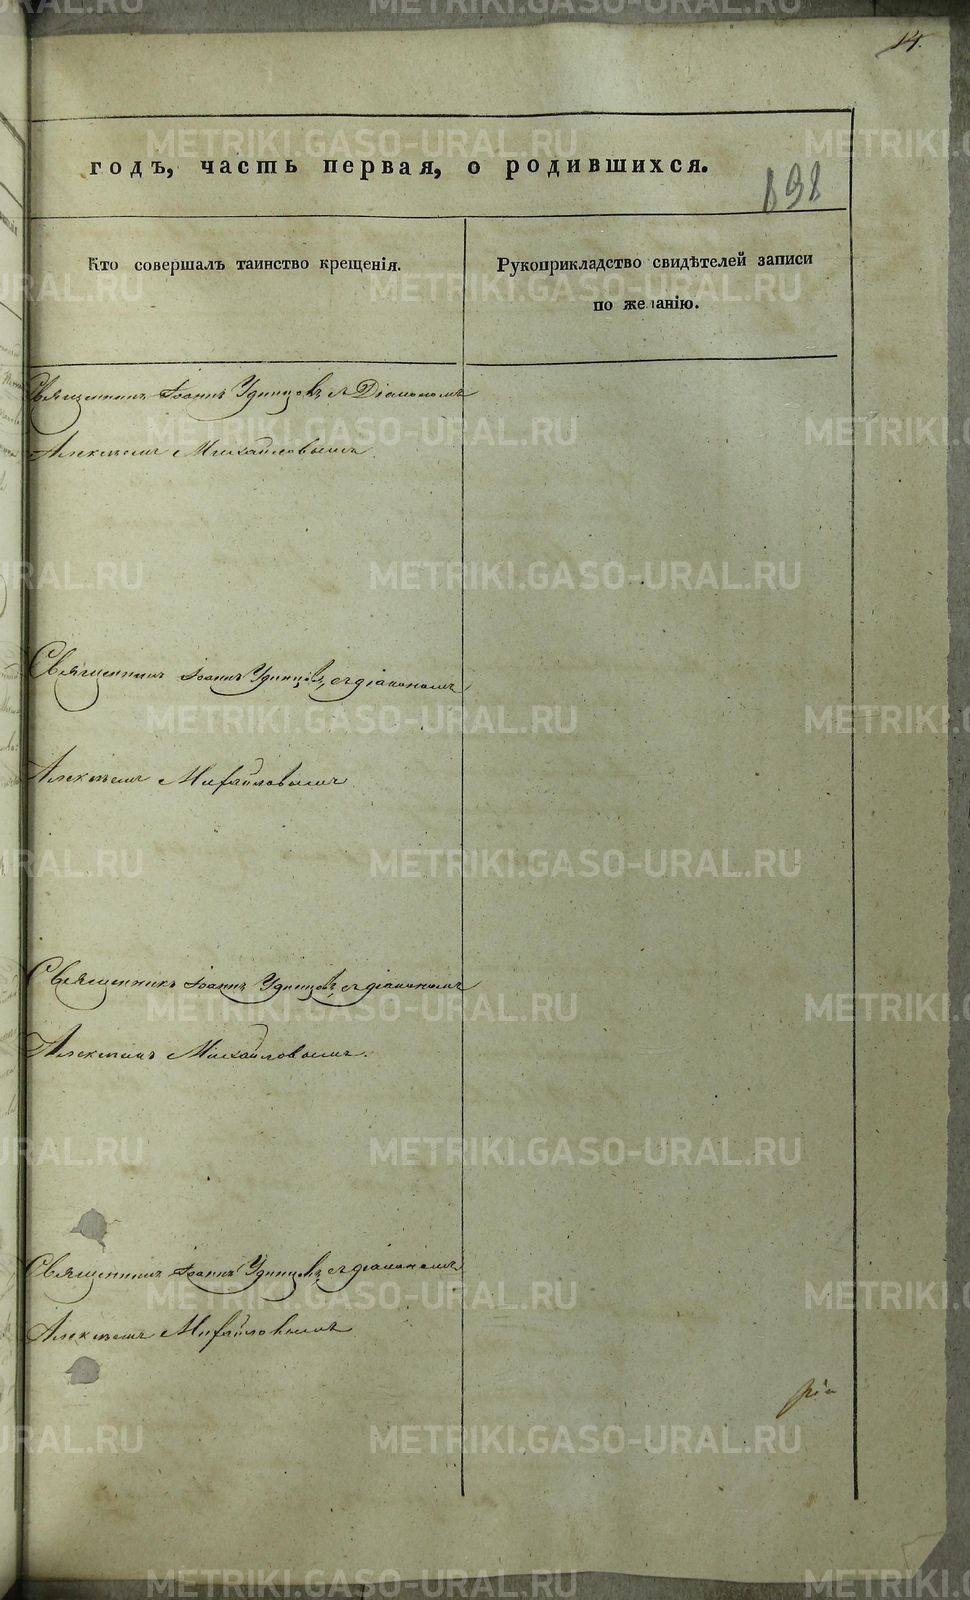 14.
годъ, часть первая, о родившихся.
898
Кто совершалъ таинство крещенія.
Рукоприкладство свидѣтелей записи
по желанію.
Священникъ Іоаннъ Удинцовъ съ Діакономъ
Алексѣемъ Михайловымъ
Священникъ Іоаннъ Удинцовъ, съ діакономъ
Алексѣемъ Михайловымъ.
Священникъ Іоаннъ Удинцовъ, съ діакономъ
Алексѣемъ Михайловымъ.
Священникъ Іоаннъ Удинцовъ, съ діакономъ
Алексѣемъ Михайловымъ
METRIKI.GASO-URAL.RU